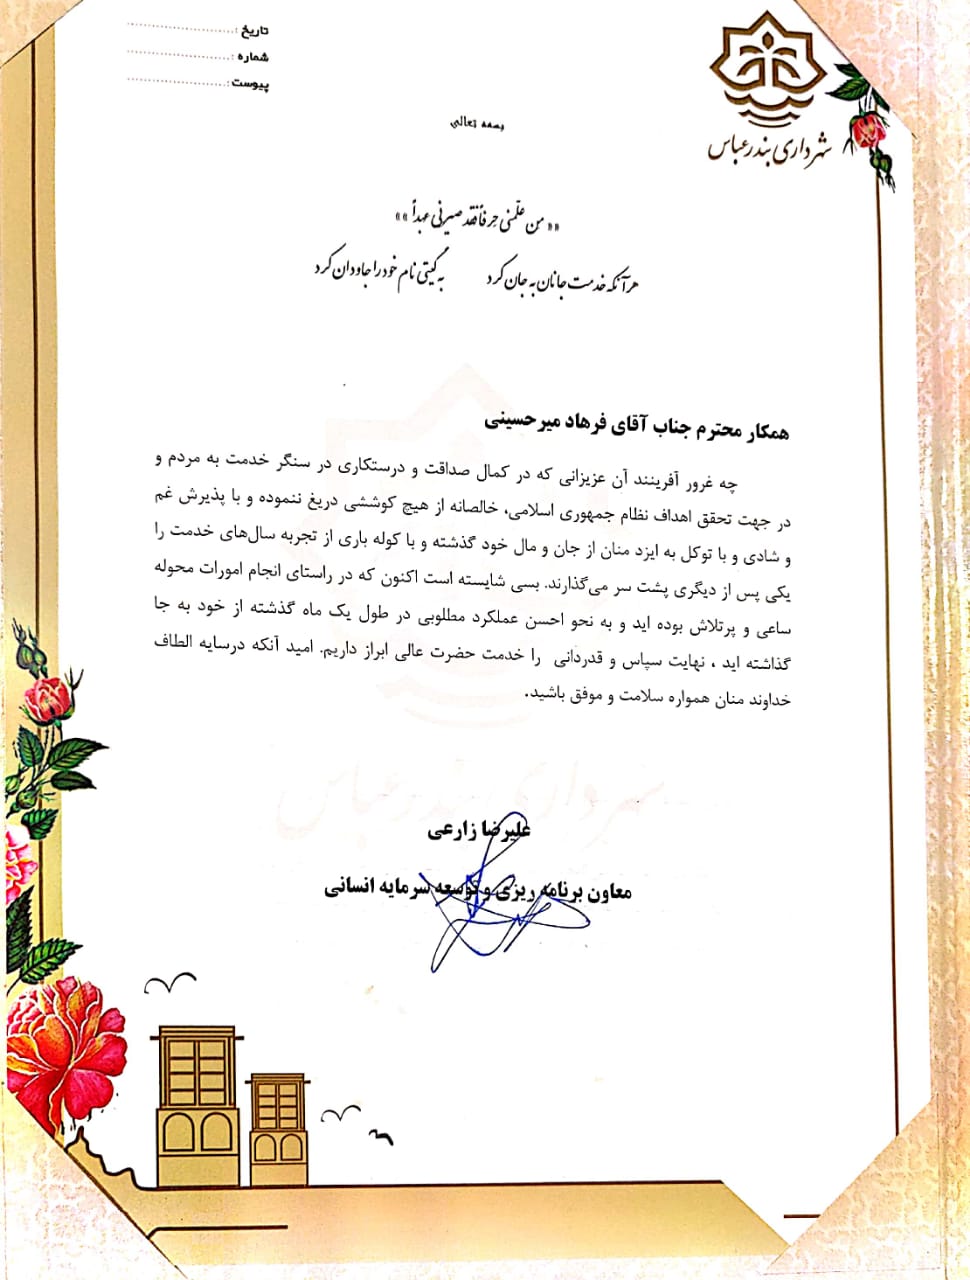 تاریخ :
شماره :
پیوست :
شهرداری بندرعباس
بسمه تعالی
«« من علّمنی حرفاً فقد صیرنی عبداً »»
هر آنکه خدمت جانان به جان کرد به گیتی نام خود را جاودان کرد
همکار محترم جناب آقای فرهاد میرحسینی
چه غرور آفرینند آن عزیزانی که در کمال صداقت و درستکاری در سنگر خدمت به مردم و
در جهت تحقق اهداف نظام جمهوری اسلامی، خالصانه از هیچ کوششی دریغ ننموده و با پذیرش غم
و شادی و با توکل به ایزد منان از جان و مال خود گذشته و با کوله باری از تجربه سال‌های خدمت را
یکی پس از دیگری پشت سر می‌گذارند. بسی شایسته است اکنون که در راستای انجام امورات محوله
ساعی و پرتلاش بوده اید و به نحو احسن عملکرد مطلوبی در طول یک ماه گذشته از خود به جا
گذاشته اید ، نهایت سپاس و قدردانی را خدمت حضرت عالی ابراز داریم. امید آنکه درسایه الطاف
خداوند منان همواره سلامت و موفق باشید.
شهرداری بندرعباس
علیرضا زارعی
معاون برنامه ریزی و توسعه سرمایه انسانی